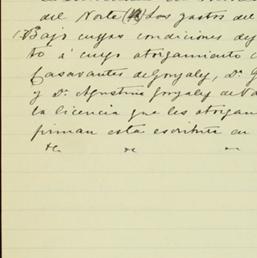 del Norte (R) Los gastos del
Bajo cuyas condiciones de
to i cuyo otorgamiento
Casavantes de Gonzalez, Da. G
y Da. Agustina Gonzalez de
la licencia que les otorgan
firman esta escritura en